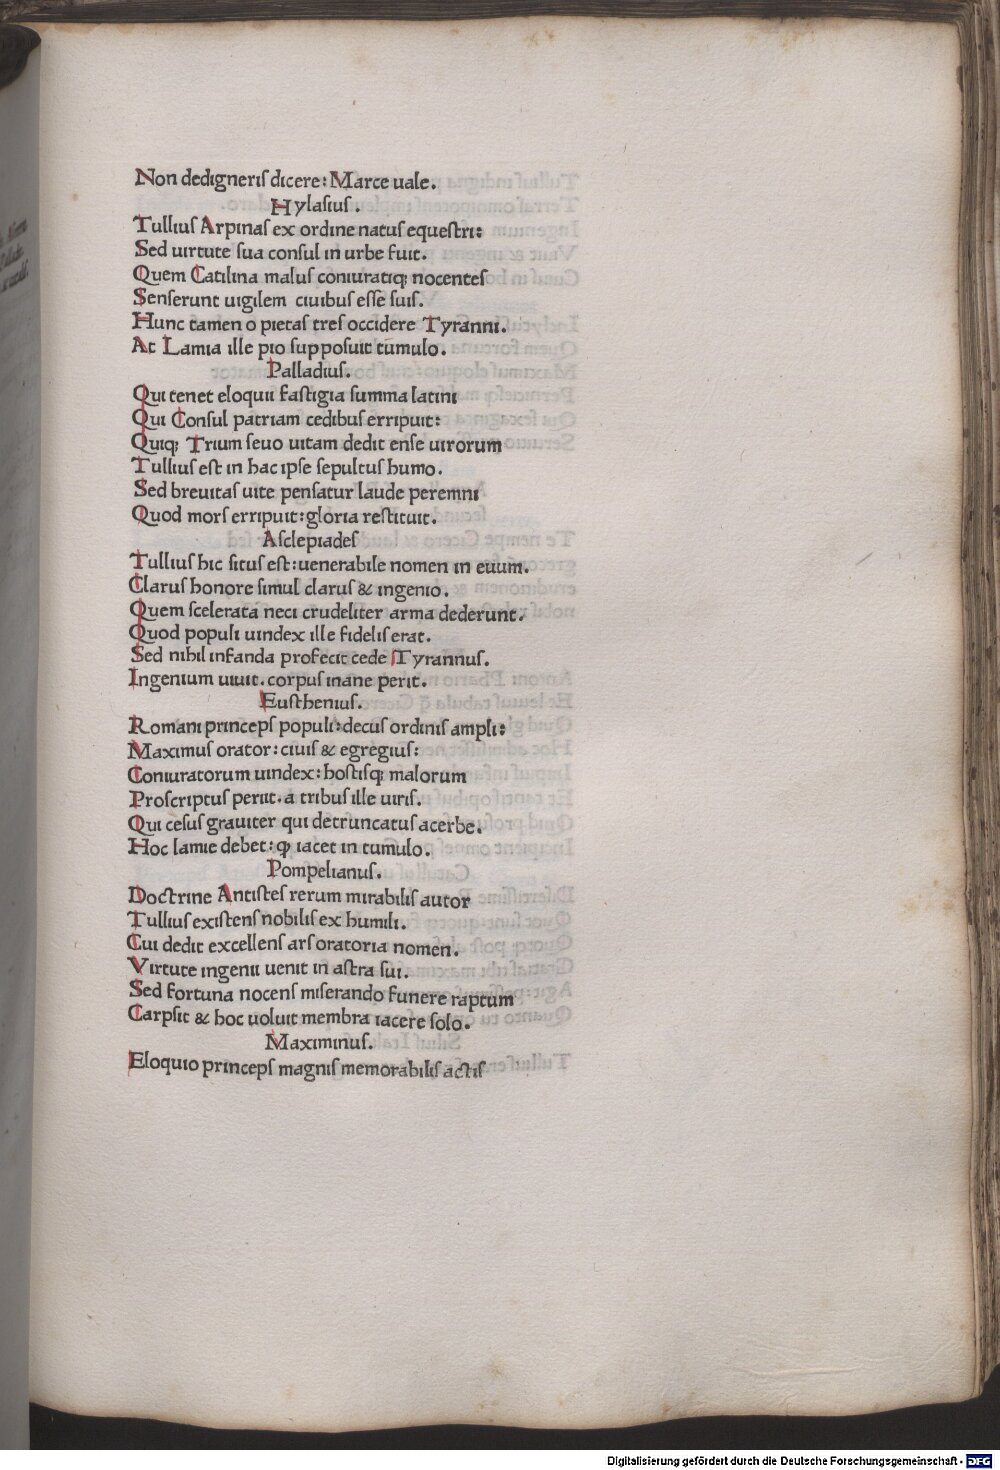 Non dedigneriſ dicere: Marce uale.
Hylaſius.
Tulliuſ Arpinaſ ex ordine natuſ equeſtri:
Sed uirtute ſua conſul in urbe fuit.
Quem Catilina maluſ coniuratiq; nocenteſ
Senſerunt uigilem ciuibuſ eſſe ſuiſ.
Hunc tamen o pietaſ treſ occidere Tyranni.
At Lamia ille pio ſuppoſuit tūmulo.
Palladiuſ.
Qui tenet eloquii faſtigia ſumma latini
Qui Conſul patriam cedibuſ erripuit:
Quiq; Trium ſeuo uitam dedit enſe uirorum
Tulliuſ eſt in hac ipſe ſepultuſ humo.
Sed breuitaſ uite penſatur laude peremni
Quod morſ erripuit: gloria reſtituit.
Aſclepiadeſ
Tulliuſ hic ſituſ eſt: uenerabile nomen in euum.
Claruſ honore ſimul claruſ & ingenio.
Quem ſcelerata neci crudeliter arma dederunt.
Quod populi uindex ille fideliſ erat.
Sed nihil infanda profecit cede Tyrannuſ.
Ingenium uiuit. corpuſ inane perit.
Euſtheniuſ.
Romani princepſ populi: decuſ ordiniſ ampli:
Maximuſ orator: ciuiſ & egregiuſ:
Coniuratorum uindex: hoſtiſq; malorum
Proſcriptuſ periit. a tribuſ ille uiriſ.
Qui ceſuſ grauiter qui detruncatuſ acerbe.
Hoc lamie debet: ꝙ iacet in tumulo.
Pompelianuſ.
Doctrine Antiſteſ rerum mirabiliſ autor
Tulliuſ exiſtenſ nobiliſ ex humili.
Cui dedit excellenſ arſ oratoria nomen.
Virtute ingenii uenit in aſtra ſui.
Sed fortuna nocenſ miſerando funere raptum
Carpſit & hoc uoluit membra iacere ſolo.
Maximinuſ.
Eloquio princepſ magniſ memorabiliſ actiſ
Digitalisierung gefördert durch die Deutsche Forschungsgemeinschaft - DFG